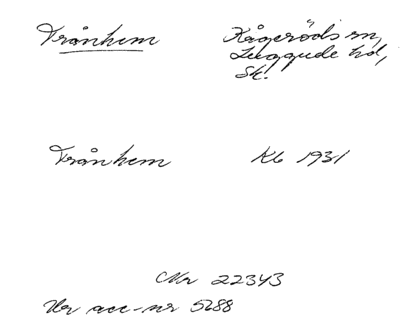 Trånhem Kågeröds sn,
Luggude hd,
Sk.
Trånhem Kb 1931
Nr 22343
Ur acc-nr 5288